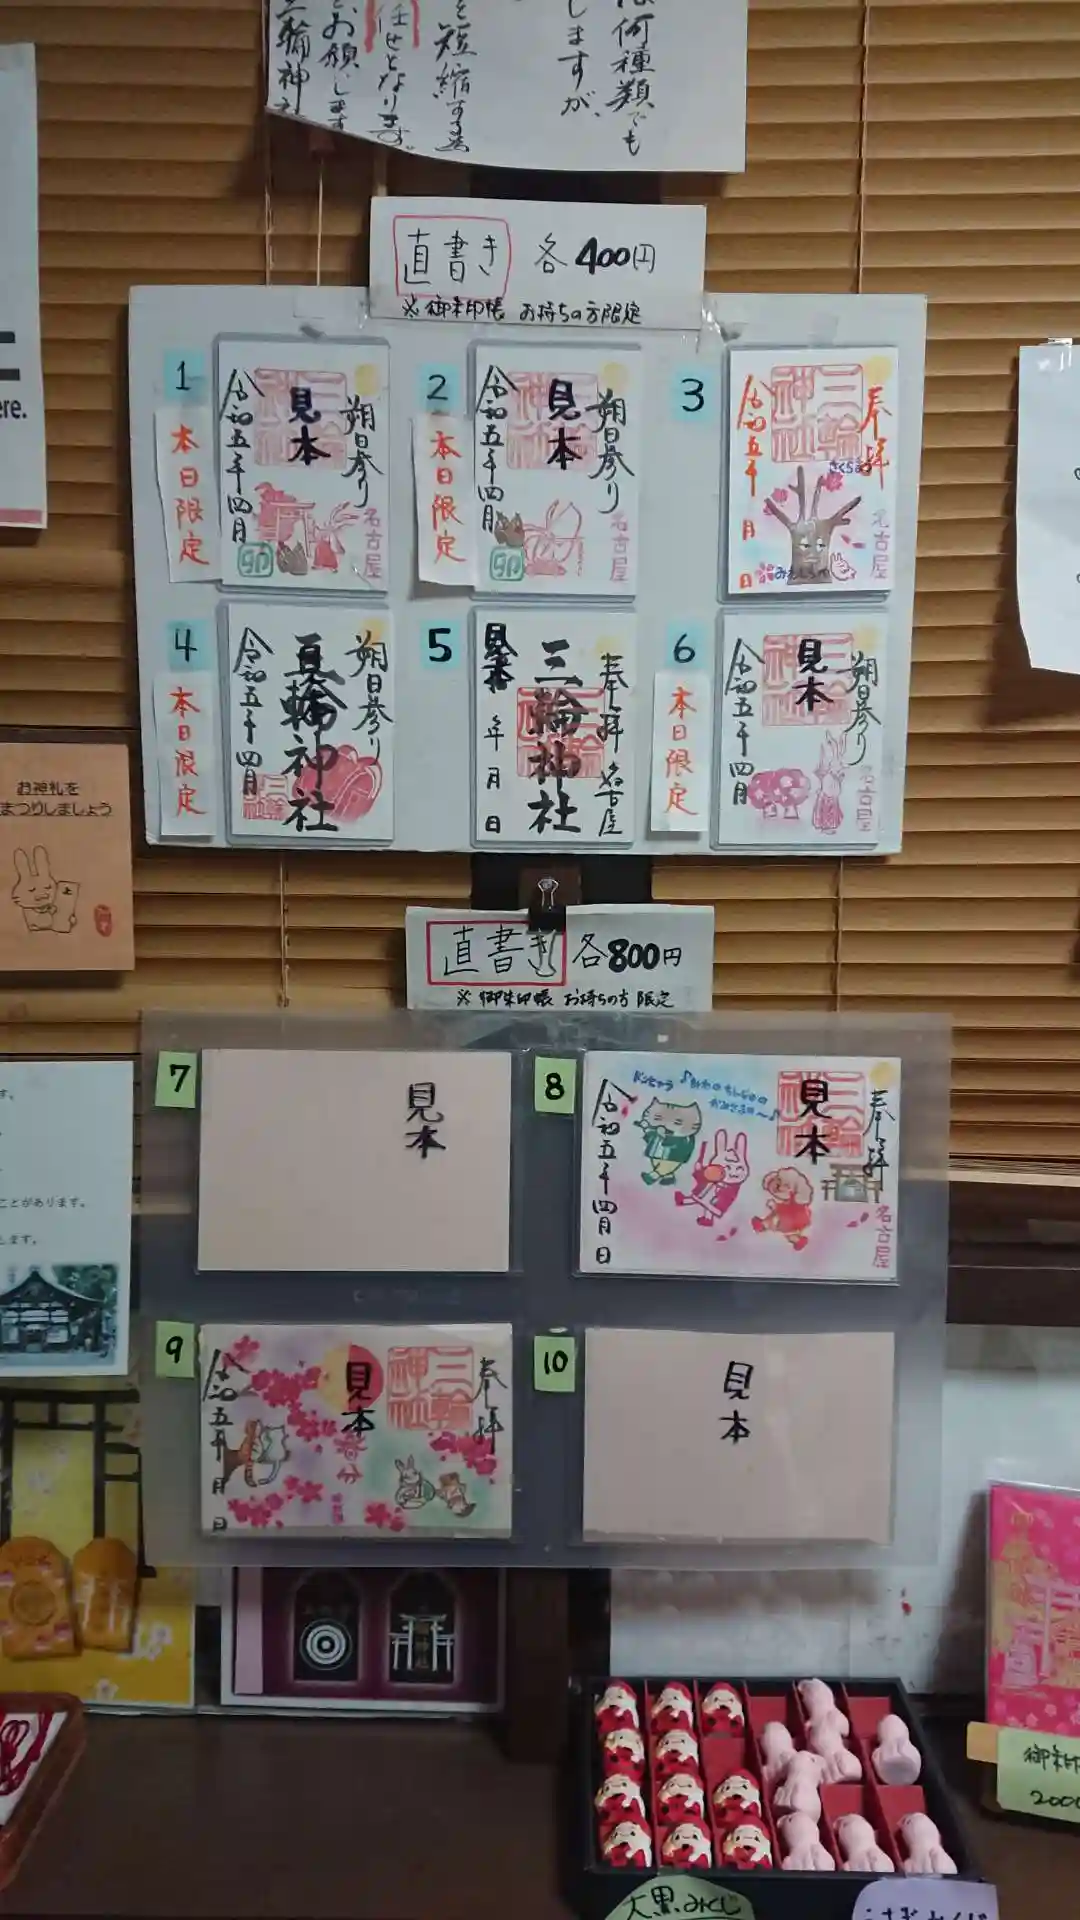 何種類でも
しますが、
を短縮する為
任せとなります。
お願いします
三輪神社
直書き 各400円
※御朱印帳 お持ちの方限定
1
本日限定
朔日参り
見本
令和五年四月
名古屋
卯
2
本日限定
朔日参り
見本
令和五年四月
名古屋
卯
3
奉拝
三輪神社
令和五年 月 日
さくら
名古屋
4
本日限定
朔日参り
令和五年四月
5
見本
奉拝 名古屋
三輪神社
年 月 日
6
本日限定
朔日参り
見本
令和五年四月
名古屋
ere.
お神札を
まつりしましょう
直書き 各800円
※御朱印帳 お持ちの方限定
7
見本
8
奉拝
見本
令和五年四月 日
名古屋
9
奉拝
三輪神社
見本
春分
令和五年 月 日
10
見本
す。
ことがあります。
します。
大黒みくじ
うさぎみくじ
御朱印
2000